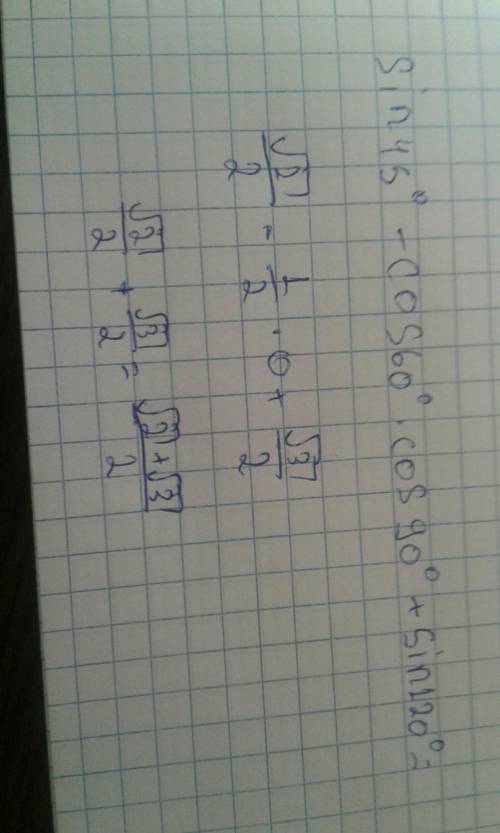 sin45° - cos60° · cos90° + sin120° =
√2/2 - 1/2 · 0 + √3/2
√2/2 + √3/2 = (√2+√3)/2